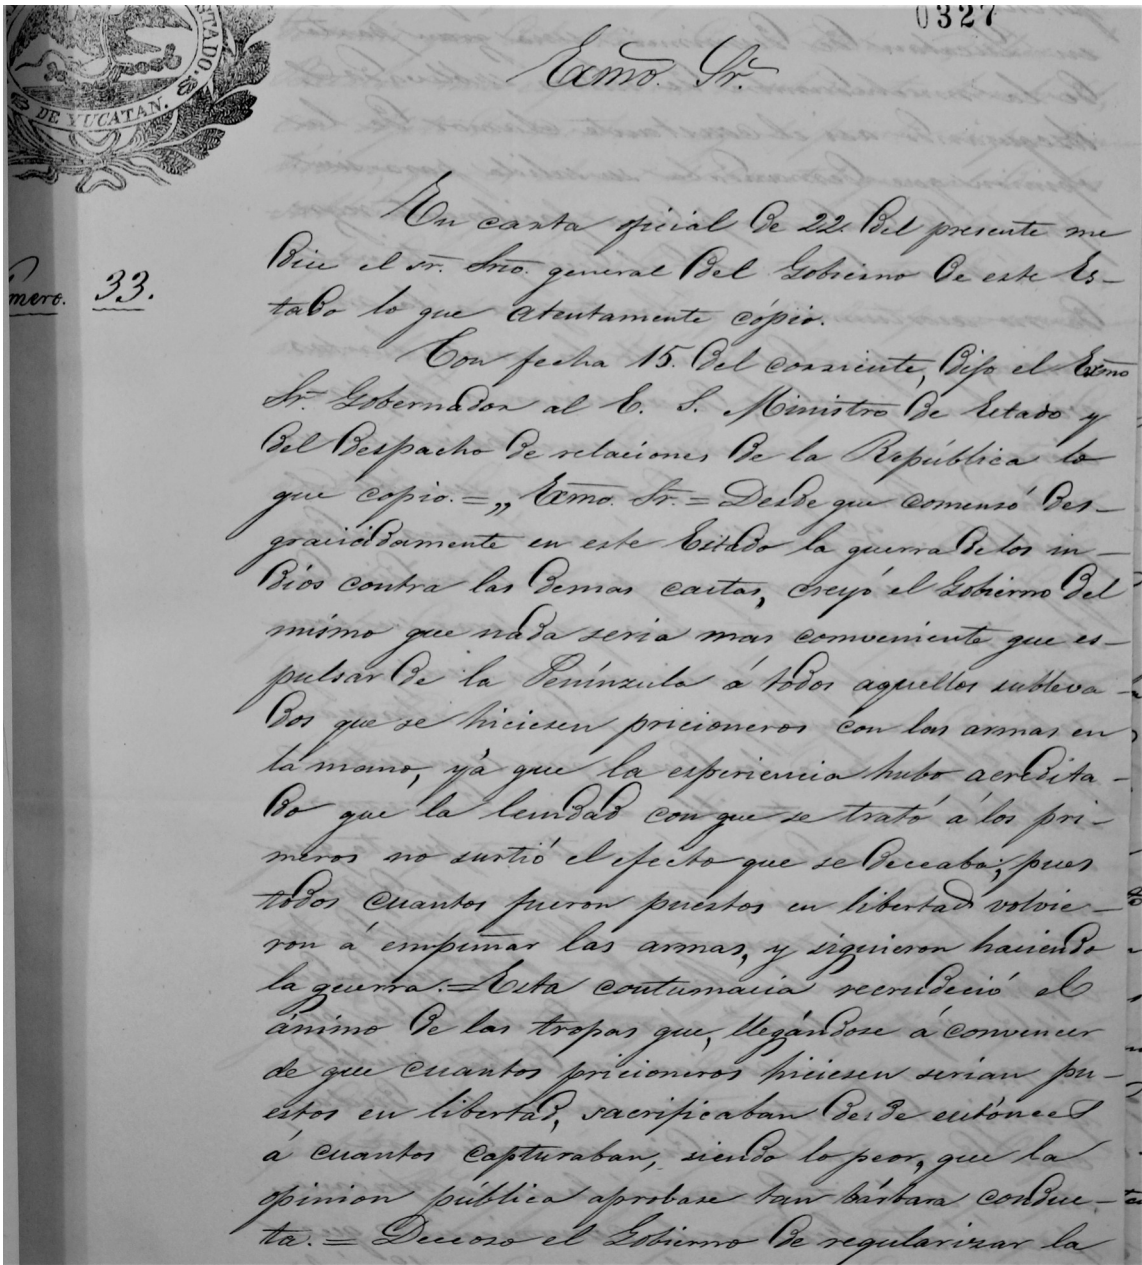 0327
ESTADO.
DE YUCATAN.
Exmo. Sr.
mero. 33.
En carta oficial de 22 del presente me
dice el sr. Srio. general del Gobierno de este Es-
tado lo que atentamente cópio.
Con fecha 15. del corriente, dijo el Exmo
Sr. Gobernador al E. S. Ministro de Estado y
del Despacho de relaciones de la República lo
que copio. = „ Exmo. Sr. = Desde que comensó des-
graciadamente en este Estado la guerra de los in-
dios contra las demas castas, creyó el Gobierno del
mismo que nada seria mas conveniente que es-
pulsar de la Península á todos aquellos subleva-
dos que se hiciesen pricioneros con las armas en
la mano, yá que la esperiencia hubo acredita-
do que la lenidad con que se trató á los pri-
meros no surtió el efecto que se deceaba; pues
todos cuantos fueron puestos en libertad volvie-
ron á empuñar las armas, y siguieron haciendo
la guerra. = Esta contumacia recrudeció el
ánimo de las tropas que, llegándose á convencer
de que cuantos pricioneros hiciesen serian pu-
estos en libertad, sacrificaban desde entónces
á cuantos capturaban, siendo lo peor, que la
opinion pública aprobase tan bárbara conduc-
ta. = Deceoso el Gobierno de regularizar la